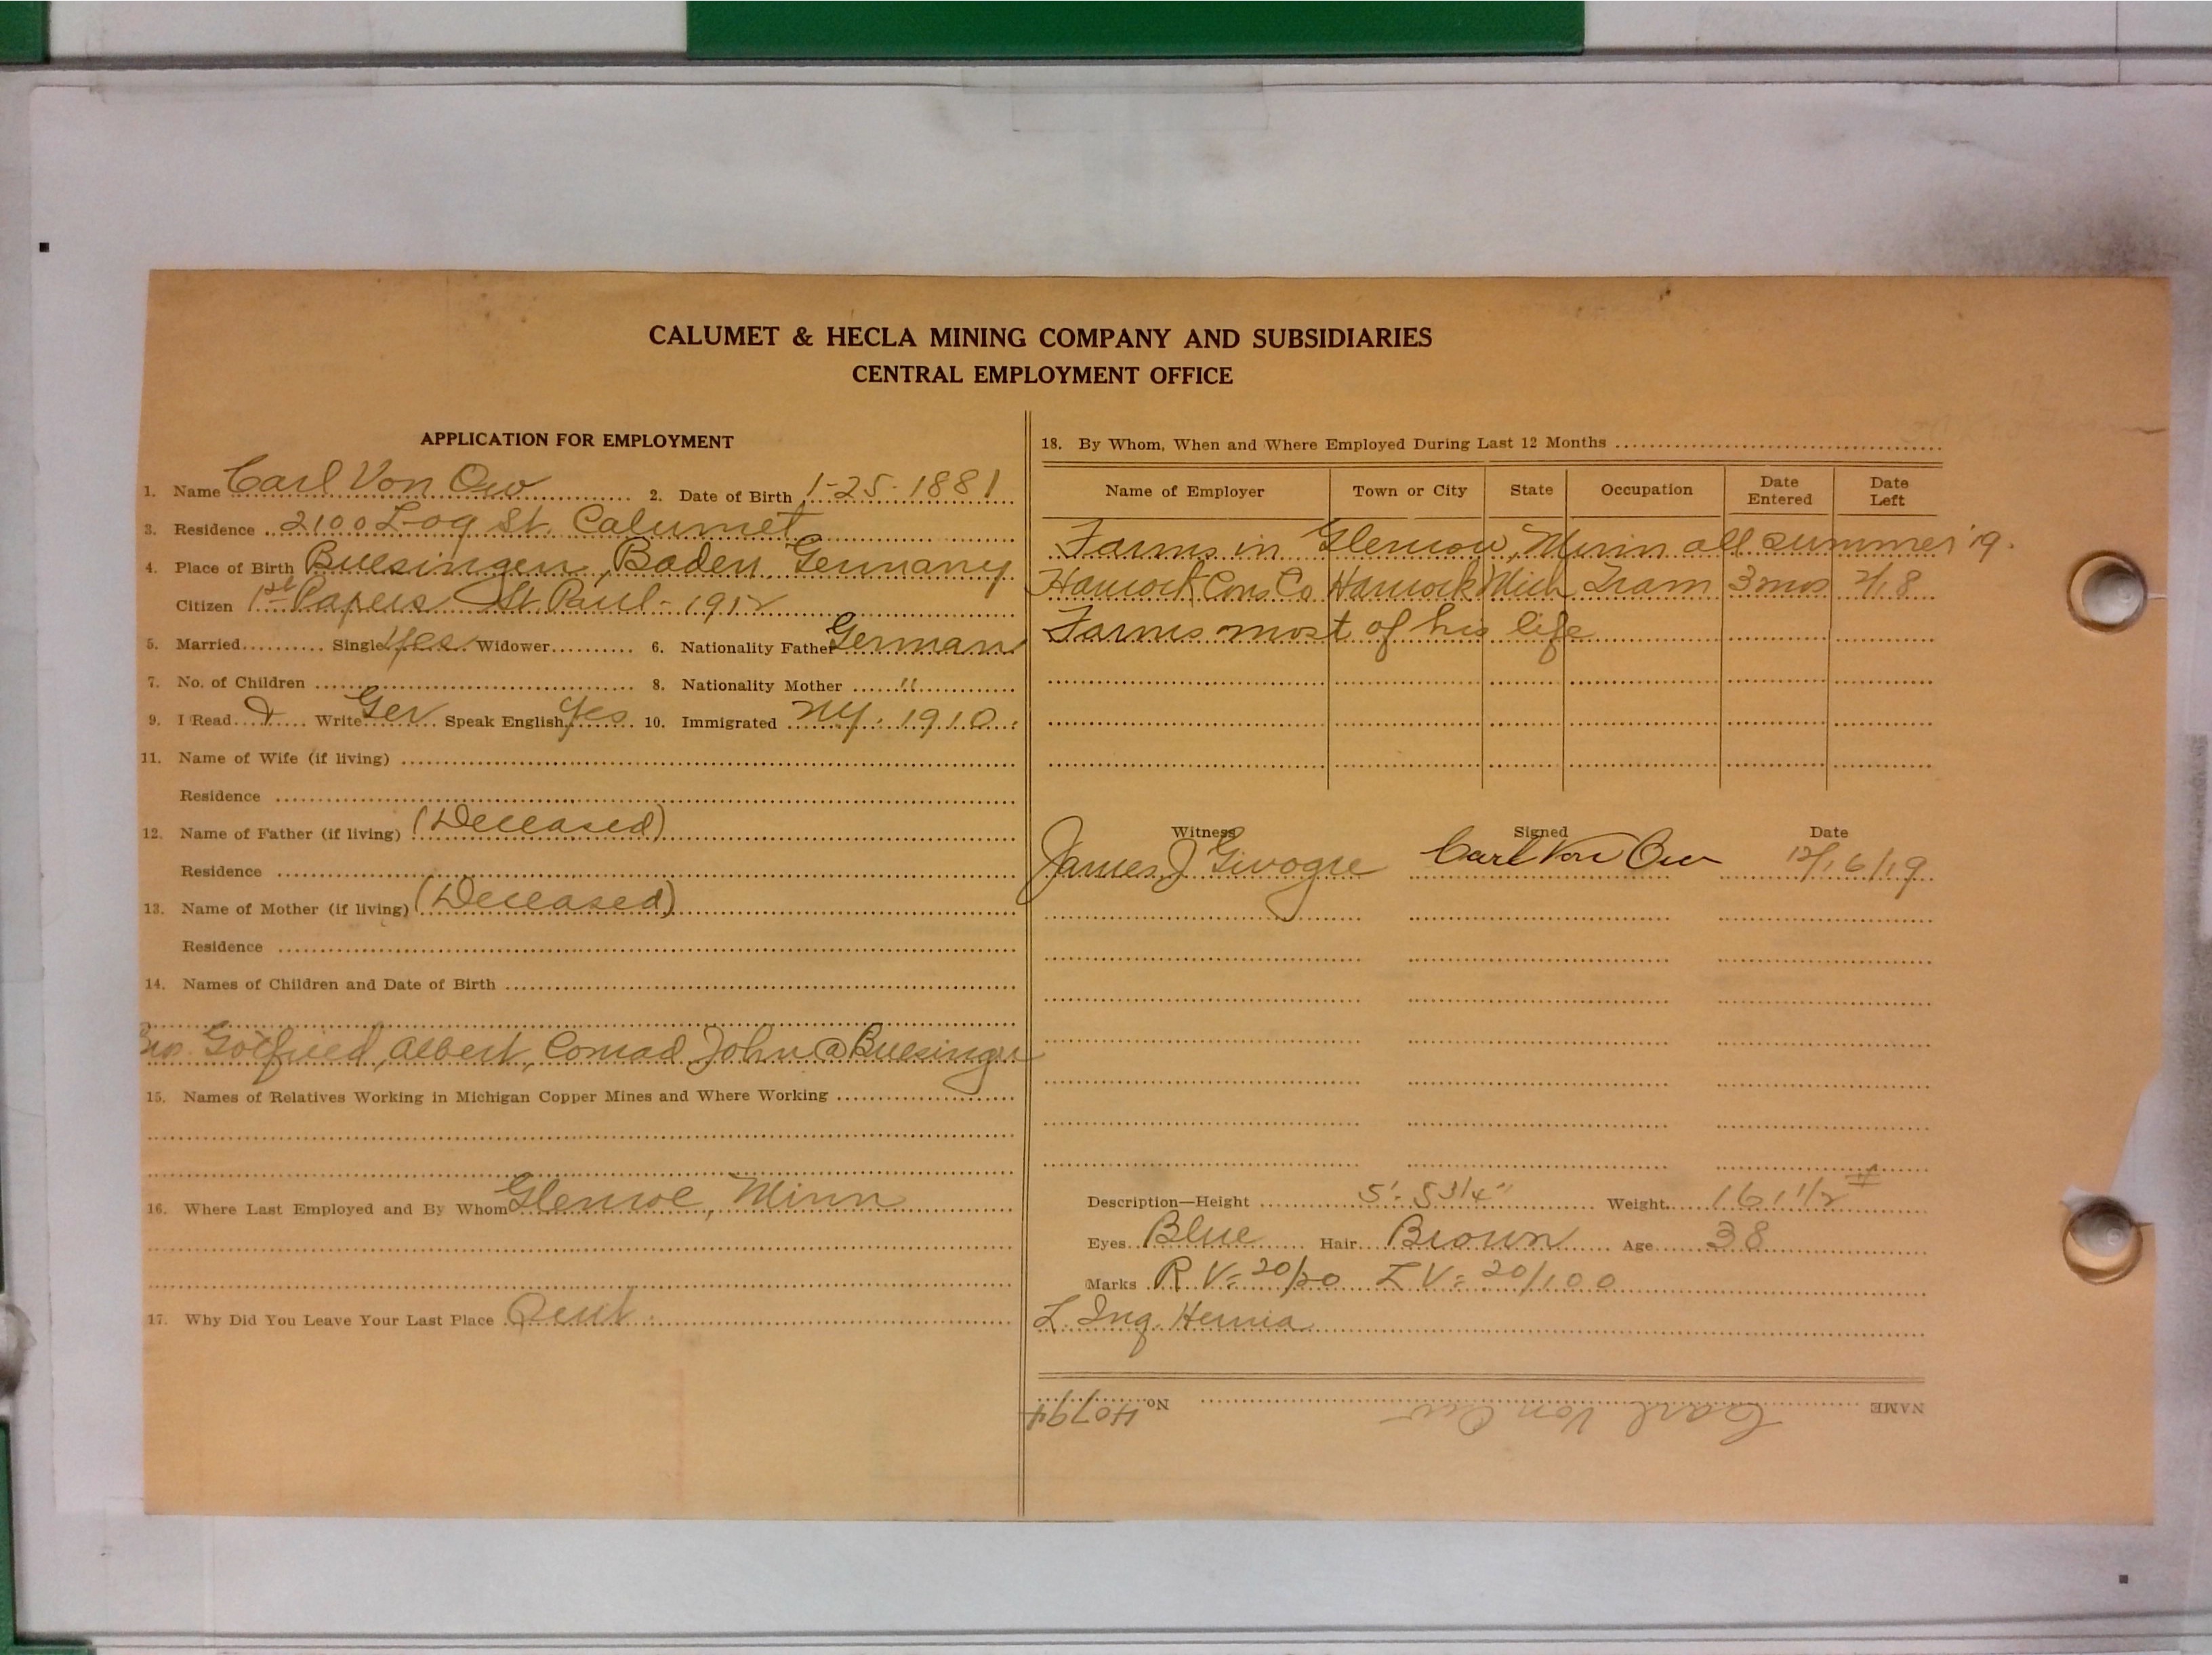 CALUMET & HECLA MINING COMPANY AND SUBSIDIARIES
CENTRAL EMPLOYMENT OFFICE
APPLICATION FOR EMPLOYMENT
1. Name Carl Von Ow 2. Date of Birth 1-25-1881
3. Residence 2100 Log St. Calumet
4. Place of Birth Buesingen, Baden, Germany
Citizen 1st Papers St Paul - 1912
5. Married Single Yes Widower 6. Nationality Father German
7. No. of Children 8. Nationality Mother "
9. I Read & Write Ger Speak English Yes 10. Immigrated NY. 1910
11. Name of Wife (if living)
Residence
12. Name of Father (if living) (Deceased)
Residence
13. Name of Mother (if living) (Deceased)
Residence
14. Names of Children and Date of Birth
Bro. Gotfried, Albert, Conrad, John @ Buesingen
15. Names of Relatives Working in Michigan Copper Mines and Where Working
16. Where Last Employed and By Whom Glencoe, Minn
17. Why Did You Leave Your Last Place Quit
18. By Whom, When and Where Employed During Last 12 Months
Name of Employer Town or City State Occupation Date Entered Date Left
Farms in Glencoe, Minn all summer '19.
Hancock Cons Co Hancock Mich Tram 3 mos 2/18
Farms most of his life
Witness Signed Date
James J Carl Von Ow 12/16/19
Description—Height 5'- 5 3/4" Weight 161 1/2 #
Eyes Blue Hair Brown Age 38
Marks R V= 20/20 L V= 20/100
L. Ing. Hernia
NAME Carl Von Ow No. 40794